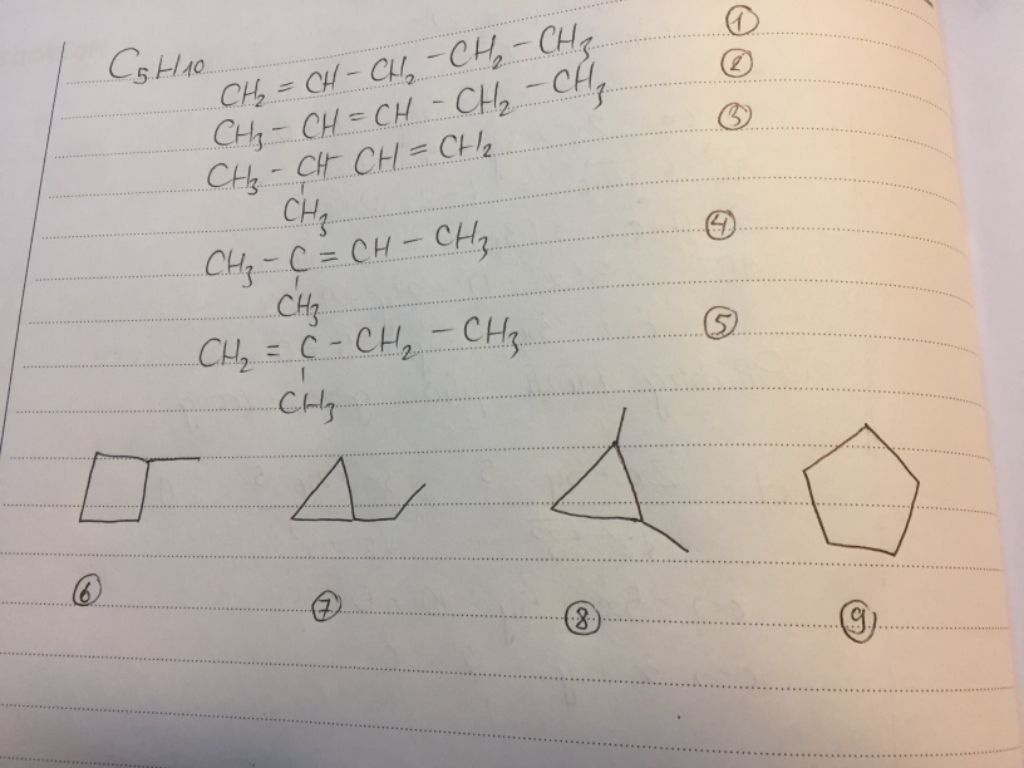 C₅H₁₀
CH₂ = CH - CH₂ - CH₂ - CH₃ ①
CH₃ - CH = CH - CH₂ - CH₃ ②
CH₃ - CH CH = CH₂ ③
CH₃
CH₃ - C = CH - CH₃ ④
CH₃
CH₂ = C - CH₂ - CH₃ ⑤
CH₃
⑥ ⑦ ⑧ ⑨